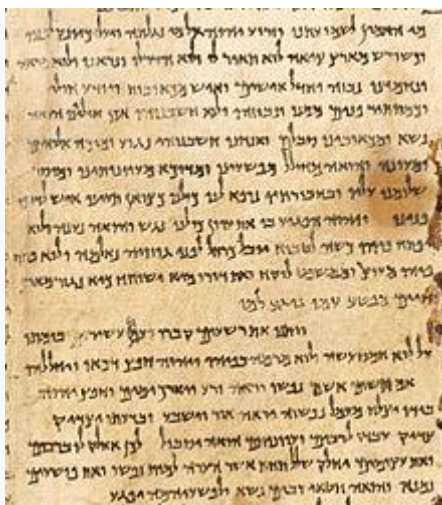 מי האמין לשמועתנו וזרוע יהוה אל מי נגלתה ויעל כיונק לפניו
וכשורש מארץ ציאה לוא תואר לו ולוא הדר לו ונראנו ולוא מראה
ונחמדנו נבזה וחדל אישים ואיש מכאובות ויודע חולי
וכמסתר פנים ממנו ונבוזהו ולוא חשבנוהו אכן חוליינו הואה
נשא ומכאובינו סבלם ואנחנו חשבנוהו נגוע ומוכה אלוהים
ומעונה והואה מחולל מפשעינו ומדוכא מעוונותינו ומוסר
שלומנו עליו ובחבורתיו נרפא לנו כולנו כצואן תעינו איש
פנינו ויהוה הפגיע בו את עוון כולנו נגש והואה נענה ולוא
פתח פיהו כשה לטבוח יובל כרחל לפני גוזזיה נאלמה ולוא פתח
פיהו מעוצר וממשפט לוקח ואת דורו מיא ישוחח כיא נגזר מארץ
חיים מפשע עמו נוגע למו
ויתנו את רשעים קברו ועם עשיר בומתו
על לוא חמס עשה ולוא מרמה בפיהו ויהוה חפץ דכאו ויחללהו
אם תשים אשם נפשו יראה זרע ויארך ימים וחפץ יהוה
בידו יצלח מעמל נפשוה יראה אור וישבע ובדעתו יצדיק
צדיק עבדו לרבים ועוונותם הואה יסבול לכן אחלק לו ברבים
ואת עצומים יחלק שלל תחת אשר הערה למות נפשו ואת פושעים
נמנה והואה חטאי רבים נשא ולפשעיהמה יפגע